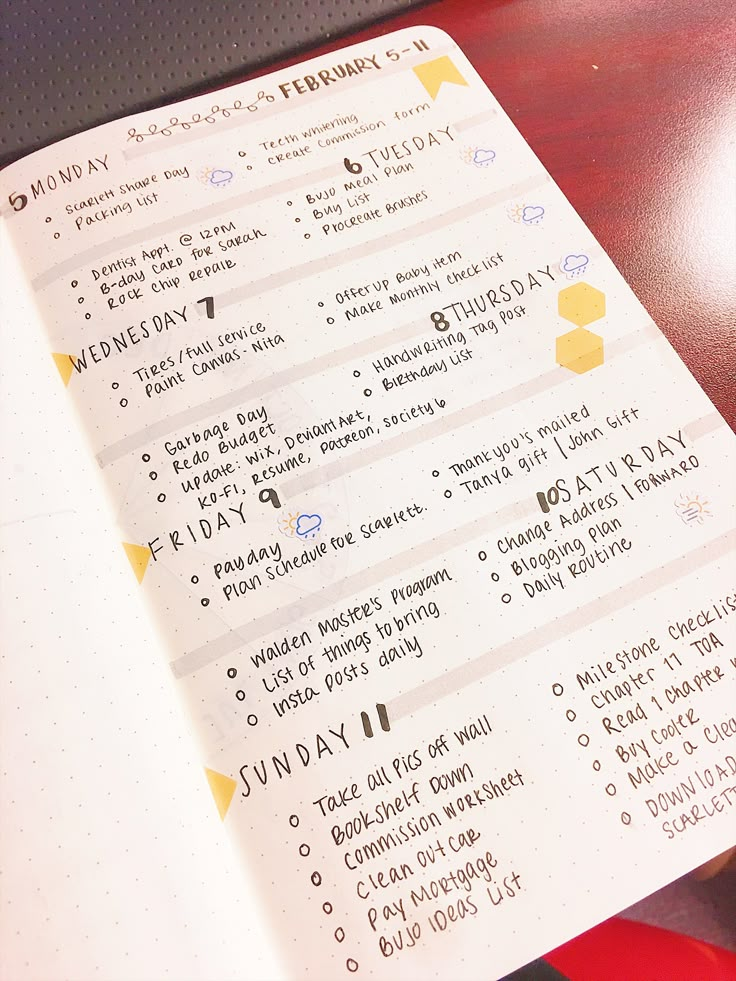 FEBRUARY 5-11
5 MONDAY
Scarlett Share Day
Packing List
Teeth whitening
Create Commission form
6 TUESDAY
Dentist Appt. @ 12PM
B-day Card for Sarah
Rock Chip Repair
BUJO Meal Plan
Buy List
Procreate Brushes
WEDNESDAY 7
Tires/full service
Paint Canvas - Nita
Offer Up Baby item
Make Monthly check list
8 THURSDAY
Garbage Day
Redo Budget
Update: Wix, DeviantArt,
KO-FI, Resume, Patreon, Society6
Handwriting Tag Post
Birthday List
FRIDAY 9
payday
Plan Schedule for Scarlett.
Thank you's mailed
Tanya gift | John Gift
10 SATURDAY
Walden Master's Program
List of things to bring
Insta posts daily
Change Address | FORWARD
Blogging Plan
Daily Routine
SUNDAY 11
Take all Pics off wall
Bookshelf Down
Commission Worksheet
Clean out car
Pay Mortgage
BUJO IDEAS LIST
Milestone Checklist
Chapter 11 TOA
Read 1 chapter
Buy Cooler
Make a
DOWNLOAD
SCARLETT